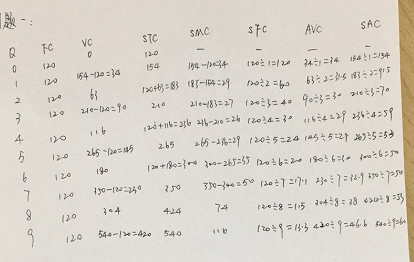 题一:
Q TC VC STC SMC SFC AVC SAC
0 120 0 120 — — — —
1 120 154-120=34 154 154-120=34 120÷1=120 34÷1=34 154÷1=154
2 120 63 120+63=183 183-154=29 120÷2=60 63÷2=31.5 183÷2=91.5
3 120 210-120=90 210 210-183=27 120÷3=40 90÷3=30 210÷3=70
4 120 116 120+116=236 236-210=26 120÷4=30 116÷4=29 236÷4=59
5 120 265-120=145 265 265-236=29 120÷5=24 145÷5=29 265÷5=53
6 120 180 120+180=300 300-265=35 120÷6=20 180÷6=30 300÷6=50
7 120 350-120=230 350 350-300=50 120÷7=17.1 230÷7=32.9 350÷7=50
8 120 304 424 74 120÷8=15 304÷8=38 424÷8=53
9 120 540-120=420 540 116 120÷9=13.3 420÷9=46.6 540÷9=60